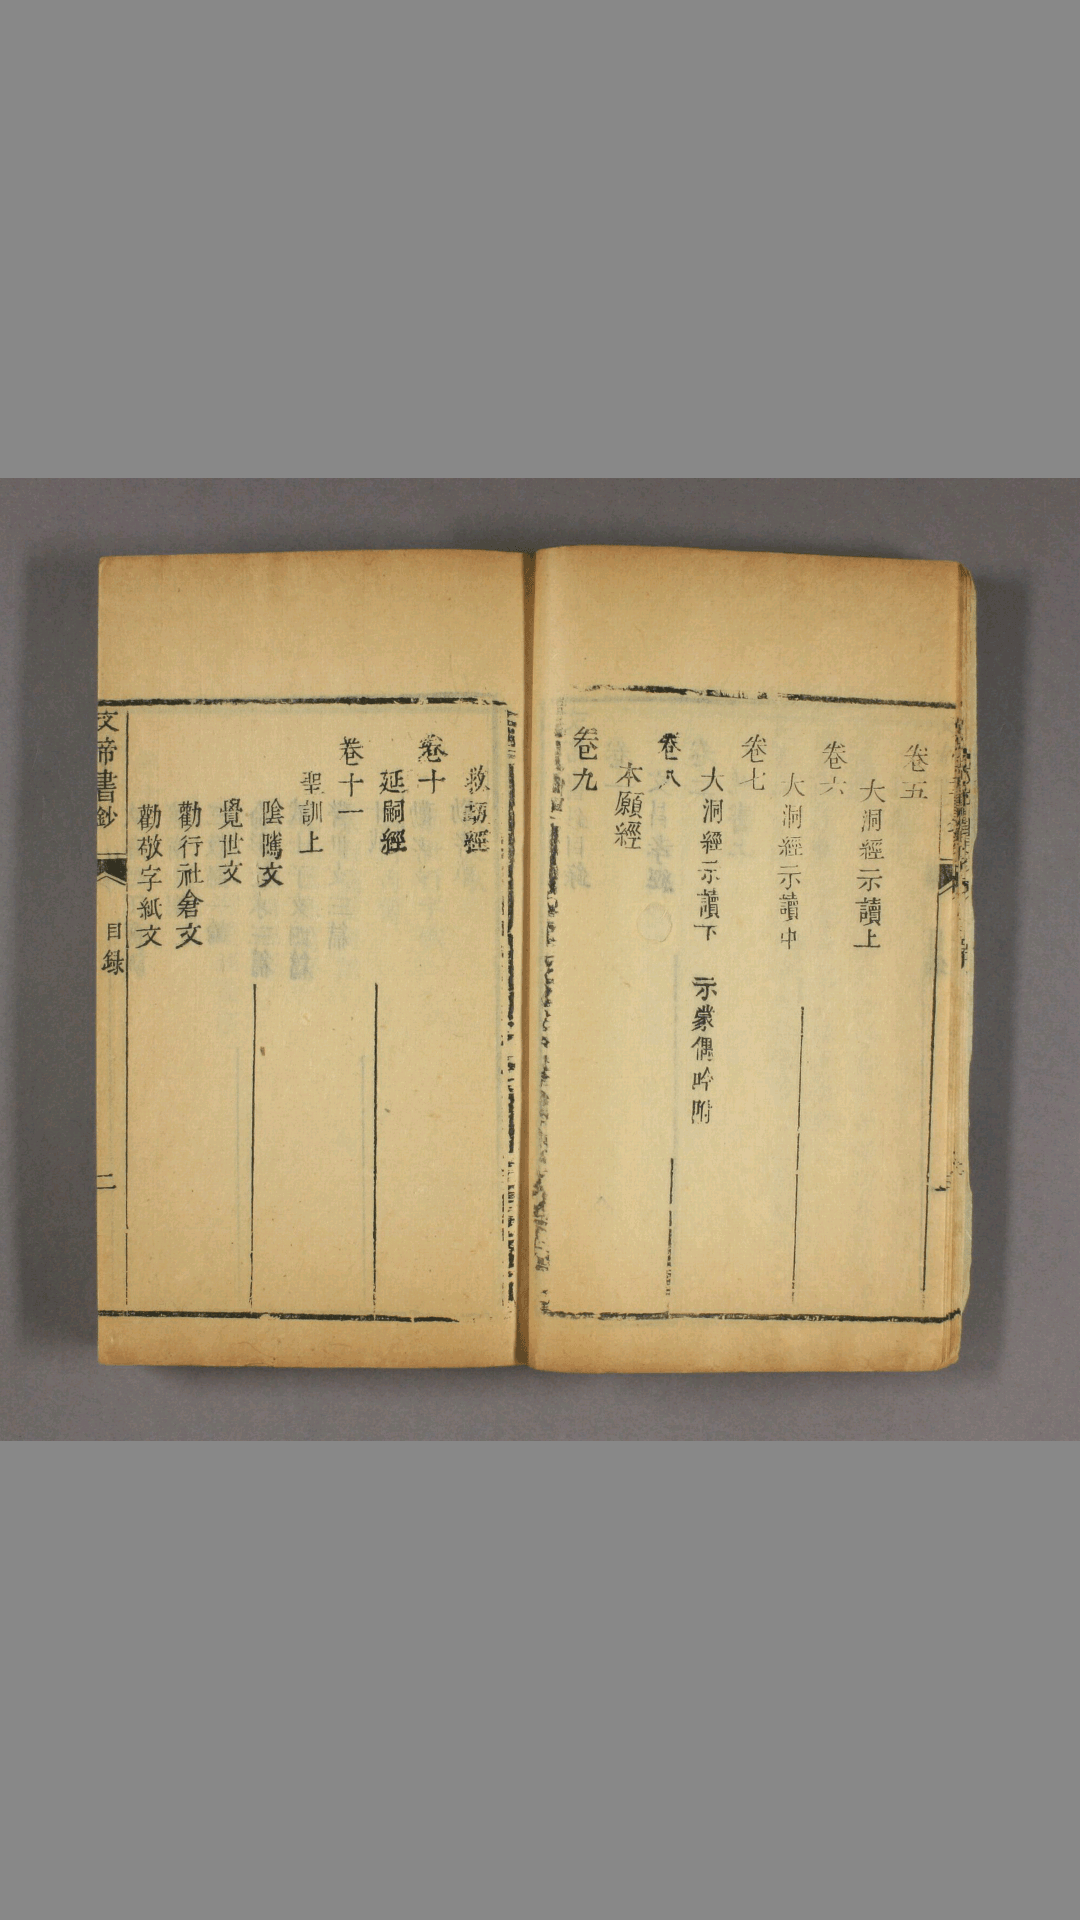 卷五
大洞經示讀上
卷六
大洞經示讀中
卷七
大洞經示讀下 示蒙偶吟附
卷八
本願經
卷九
救劫經
卷十
延嗣經
卷十一
聖訓上
陰隲文
覺世文
勸行社倉文
勸敬字紙文
文帝書鈔
目録
二